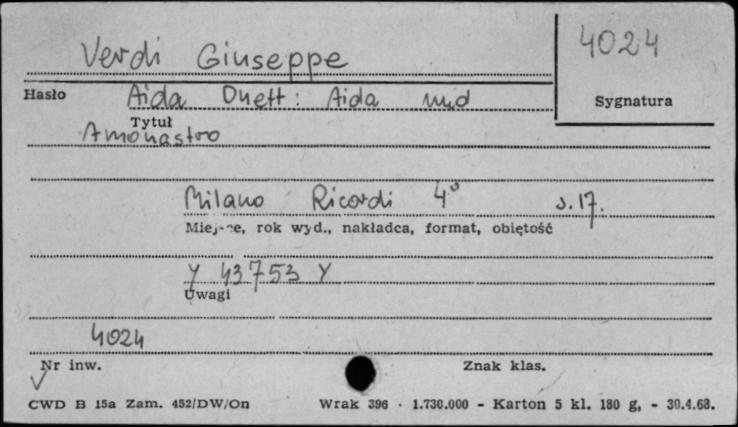 Verdi Giuseppe
4024
Hasło
Aida Duett: Aida und
Sygnatura
Tytuł
Amonastro
Milano Ricordi 4° s. 17.
Miejsce, rok wyd., nakładca, format, objętość
Y 43753 Y
Uwagi
4024
Nr inw.
Znak klas.
CWD B 15a Zam. 452/DW/On Wrak 396 · 1.730.000 - Karton 5 kl. 180 g, - 30.4.63.